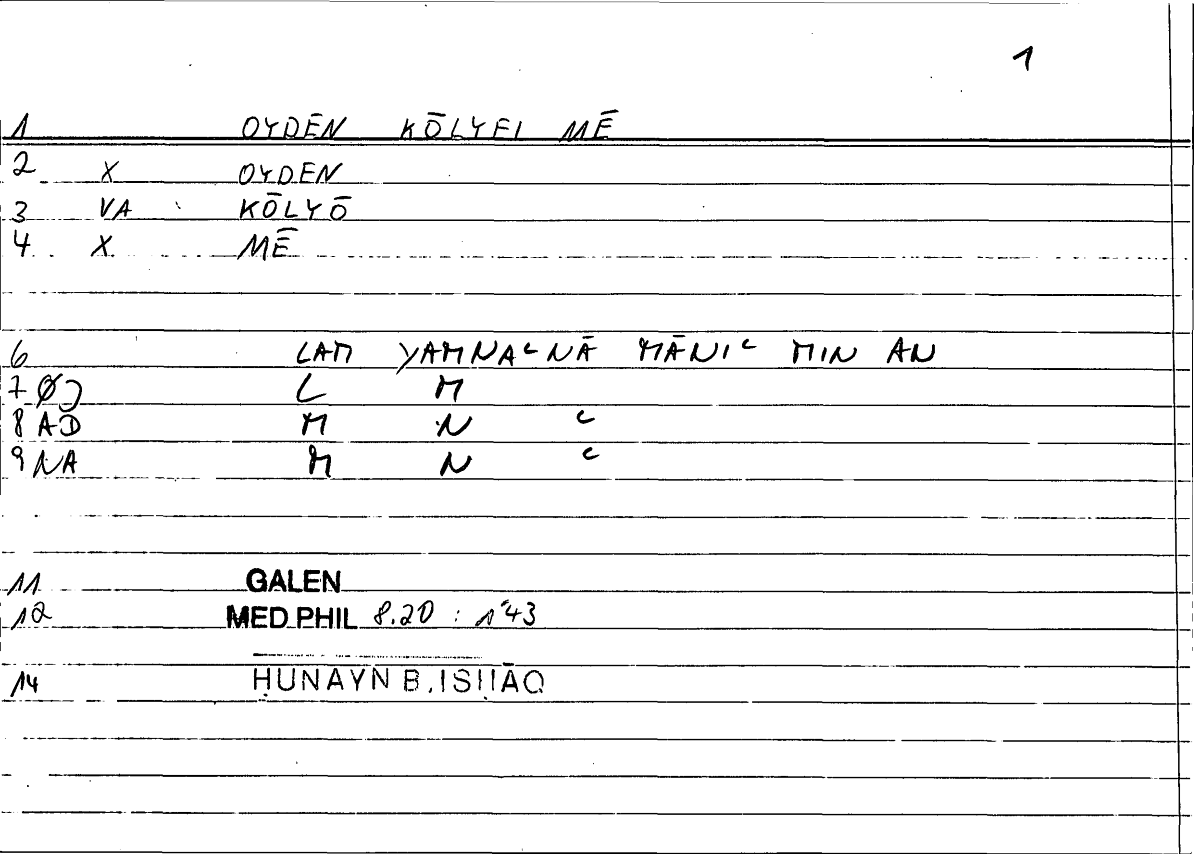 1
1 OYDĒN KŌLYEI MĒ
2 X OYDEN
3 VA KŌLYŌ
4 X MĒ
6 LAM YAMNAʿNĀ MĀNIʿ MIN AN
7 Ø) L M
8 AD M N ʿ
9 NA M N ʿ
11 GALEN
12 MED PHIL 8.20 : 1*43
14 ḤUNAYN B. ISḤĀQ